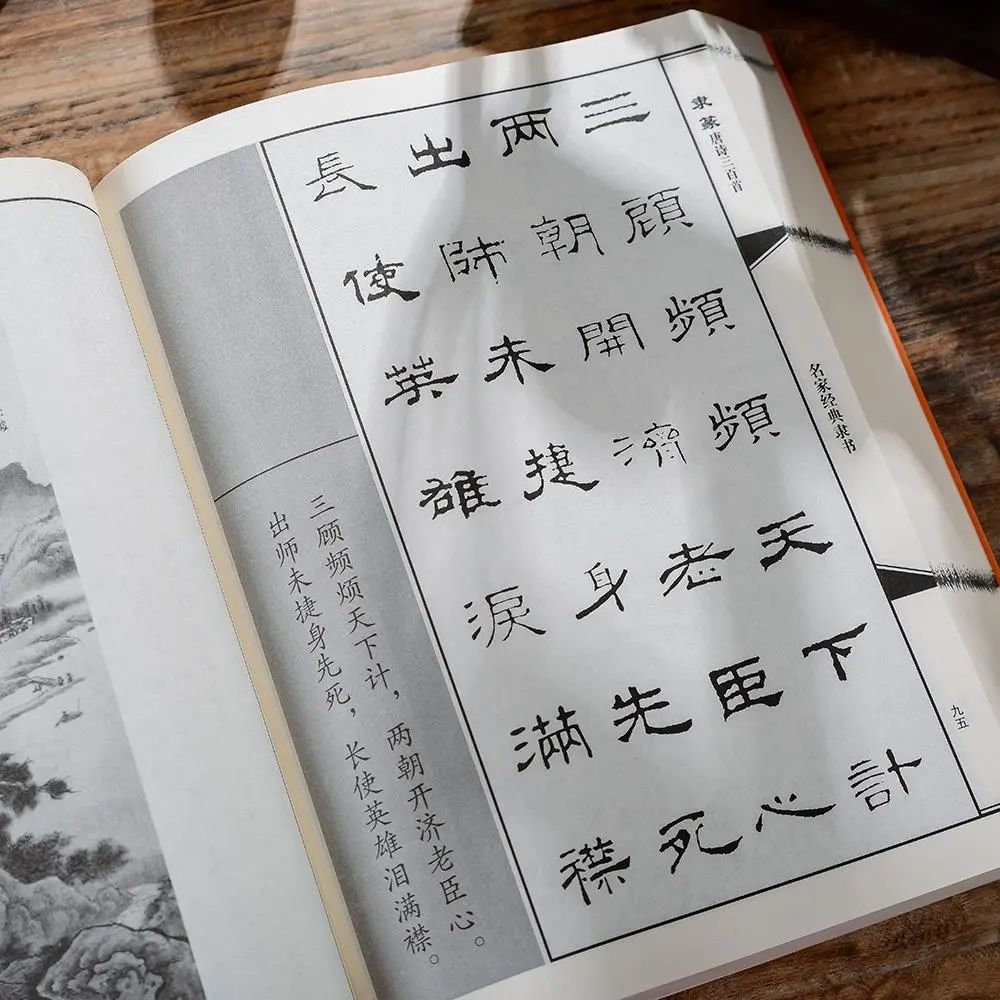 隶篆唐诗三百首
名家经典隶书
九五
三顧頻頻天下計
两朝開濟老臣心
出師未捷身先死
長使英雄淚滿襟
三顾频烦天下计，两朝开济老臣心。
出师未捷身先死，长使英雄泪满襟。